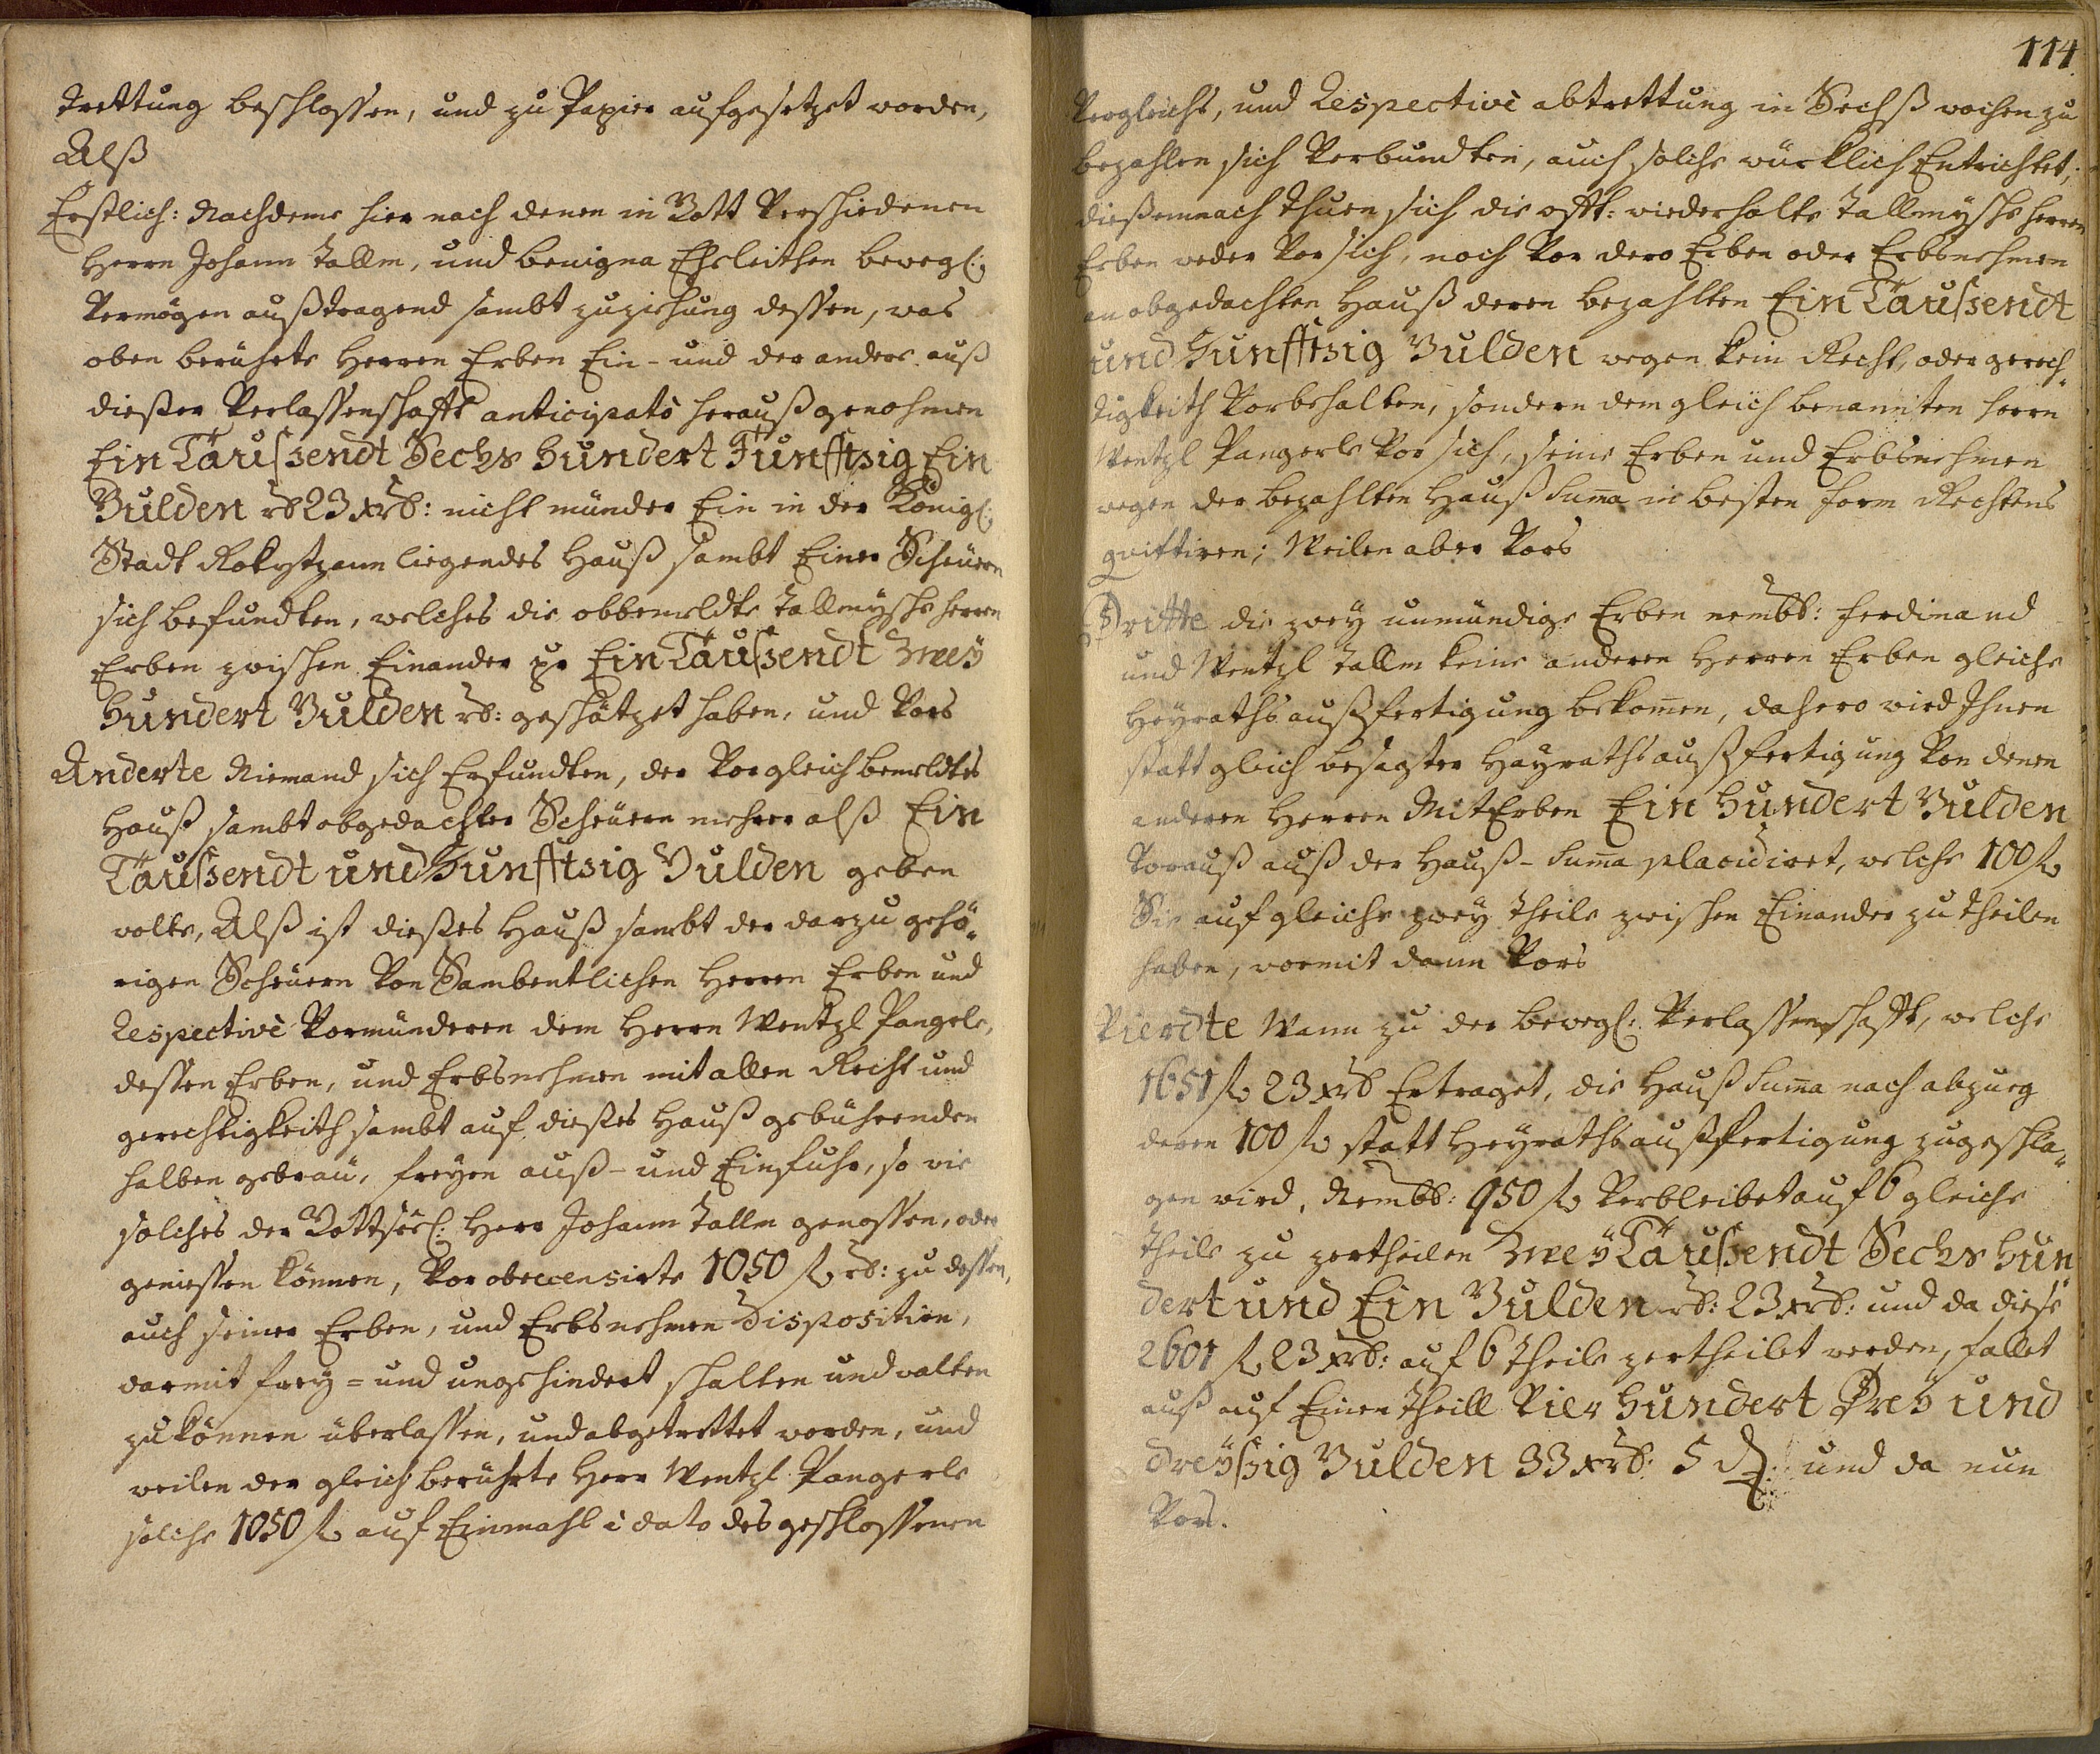 trettung beschlossen, und zu Papier aufgesetzet worden,
Alß
Erstlich: Nachdeme hier nach denen in Gott Verschiedenen
Herrn Johann Tallm, und Benigna Eheleithen bewegl:
Vermögen außtragend sambt zuziehung dessen, was
oben berührte Herren Erben Ein- und der andere auß
dießer Verlassenschafft anticipatò heraußgenohmen
Ein Taußsendt Sechs Hundert Funfftzig Ein
Gulden rh 23 xrh: nicht münder Ein in der Königl:
Stadt Rokytzann liegendes Hauß sambt Einer Scheüern
sich befundten, welches die obbemeldte Tallmysche Herren
Erben zwischen Einander pr Ein Taußsendt Zwey
Hundert Gulden rh: geschätzet haben, und Vors
Anderte Niemand sich Erfundten, der Vor gleich bemeldtes
Hauß sambt obgedachter Scheüern mehrer alß Ein
Taußsendt und Funfftzig Gulden geben
wolte, Alß ist dießes Hauß sambt der darzu gehö-
rigen Scheüern Von Sambentlichen Herren Erben und
Respectivè Vormünderen dem Herrn Wentzl Pangerle,
dessen Erben, und Erbsnehmen mit allen Recht und
gerechtigkeith sambt auf dießes Hauß gebührenden
halben gebräu, freyen auß- und Einfuhr, so wie
solches der Gottseel: Herr Johann Tallm genossen, oder
geniessen können, Vor obrecensirte 1050 f rh: zu dessen,
auch seiner Erben, und Erbsnehmen Disposition,
darmit frey- und ungehindert schalten und walten
zu können überlassen, und abgetrettet worden, und
weilen der gleich berührte Herr Wentzl Pangerle
solche 1050 f auf Einmahl à dato des geschlossenen
114.
Vergleichs, und Respectivè abtrettung in Sechß wochen zu
bezahlen sich Verbundten, auch solche würklich Entrichtet,
dießemnach thuen sich die offt: wiederholte Tallmysche Herren
Erben weder Vor sich, noch Vor dero Erben oder Erbsnehmen
an obgedachten Hauß deren bezahlten Ein Taußsendt
und Funfftzig Gulden wegen kein Recht, oder gerech-
tigkeith Vorbehalten, sondern dem gleich benannten Herrn
Wentzl Pangerle Vor sich, seine Erben und Erbsnehmen
wegen der bezahlten Hauß Suma in besten form Rechtens
quittiren; Weilen aber Vors
Dritte die zwey unmündige Erben nembl: Ferdinand
und Wentzl Tallm keine anderen Herren Erben gleiche
Heyrathsaußfertigung bekomen, dahero wird Ihnen
statt gleich besagter Heyrathsaußfertigung Von denen
anderen Herren MitErben Ein Hundert Gulden
Vorauß auß der Hauß-Suma placidiret, welche 100 f
Sie auf gleiche zwey theile zwischen Einander zu theilen
haben, wormit dann Vors
Vierdte Wann zu der bewegl: Verlassenschafft, welche
1651 f 23 xrh Ertraget, die Hauß Suma nach abzueg
deren 100 f statt Heyrathsaußfertigung zugeschla-
gen wird, Nembl: 950 f Verbleibet auf 6 gleiche
theile zu zertheilen Zwey Taußsendt Sechs Hun
dert und Ein Gulden rh: 23 xrh: und da diese
2601 f 23 xrh: auf 6 theile zertheilet werden, fallet
auß auf Einen theill Vier Hundert Drey und
dreyßzig Gulden 33 xrh: 5 d. und da nun
Vors.